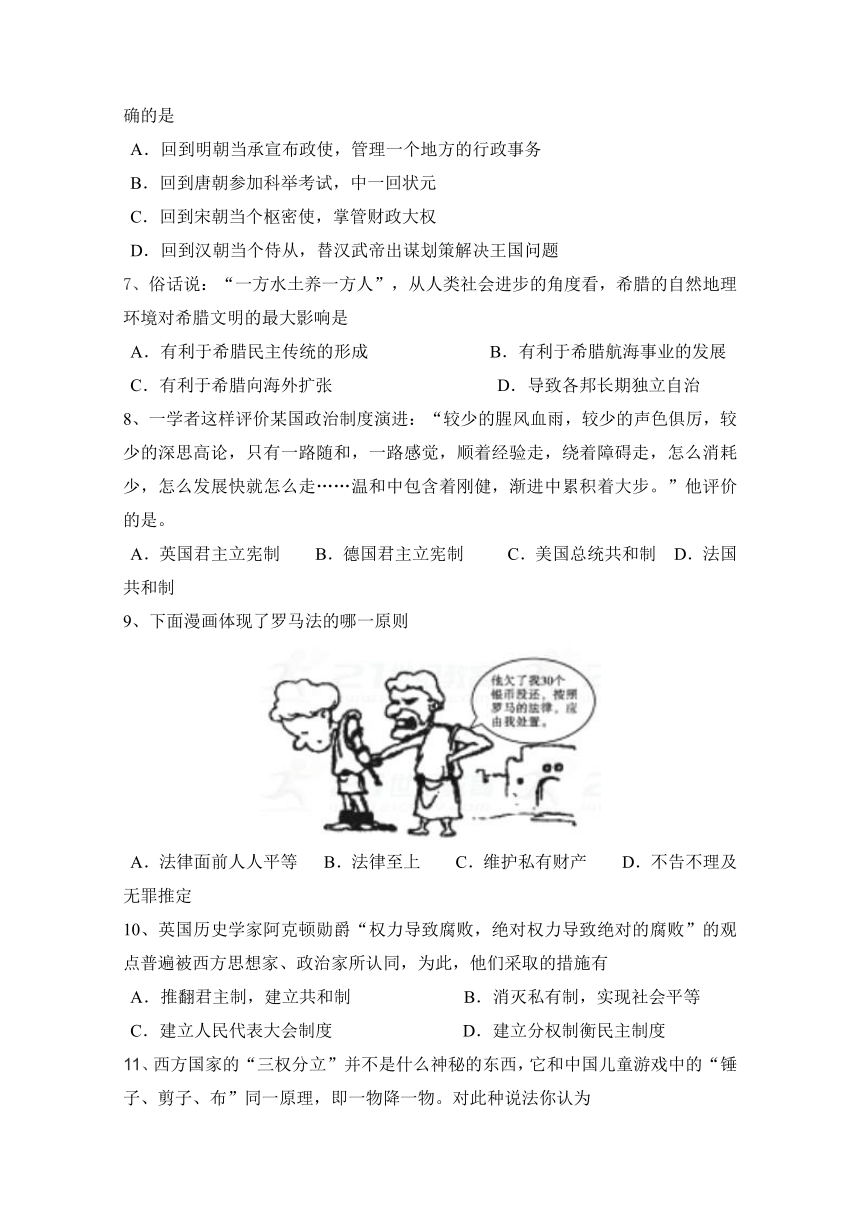 确的是
A．回到明朝当承宣布政使，管理一个地方的行政事务
B．回到唐朝参加科举考试，中一回状元
C．回到宋朝当个枢密使，掌管财政大权
D．回到汉朝当个侍从，替汉武帝出谋划策解决王国问题
7、俗话说：“一方水土养一方人”，从人类社会进步的角度看，希腊的自然地理
环境对希腊文明的最大影响是
A．有利于希腊民主传统的形成 B．有利于希腊航海事业的发展
C．有利于希腊向海外扩张 D．导致各邦长期独立自治
8、一学者这样评价某国政治制度演进：“较少的腥风血雨，较少的声色俱厉，较
少的深思高论，只有一路随和，一路感觉，顺着经验走，绕着障碍走，怎么消耗
少，怎么发展快就怎么走……温和中包含着刚健，渐进中累积着大步。”他评价
的是。
A．英国君主立宪制 B．德国君主立宪制 C．美国总统共和制 D．法国
共和制
9、下面漫画体现了罗马法的哪一原则
他欠了我30个
银币没还，按照
罗马的法律，应
由我处置。
A．法律面前人人平等 B．法律至上 C．维护私有财产 D．不告不理及
无罪推定
10、英国历史学家阿克顿勋爵“权力导致腐败，绝对权力导致绝对的腐败”的观
点普遍被西方思想家、政治家所认同，为此，他们采取的措施有
A．推翻君主制，建立共和制 B．消灭私有制，实现社会平等
C．建立人民代表大会制度 D．建立分权制衡民主制度
11、西方国家的“三权分立”并不是什么神秘的东西，它和中国儿童游戏中的“锤
子、剪子、布”同一原理，即一物降一物。对此种说法你认为